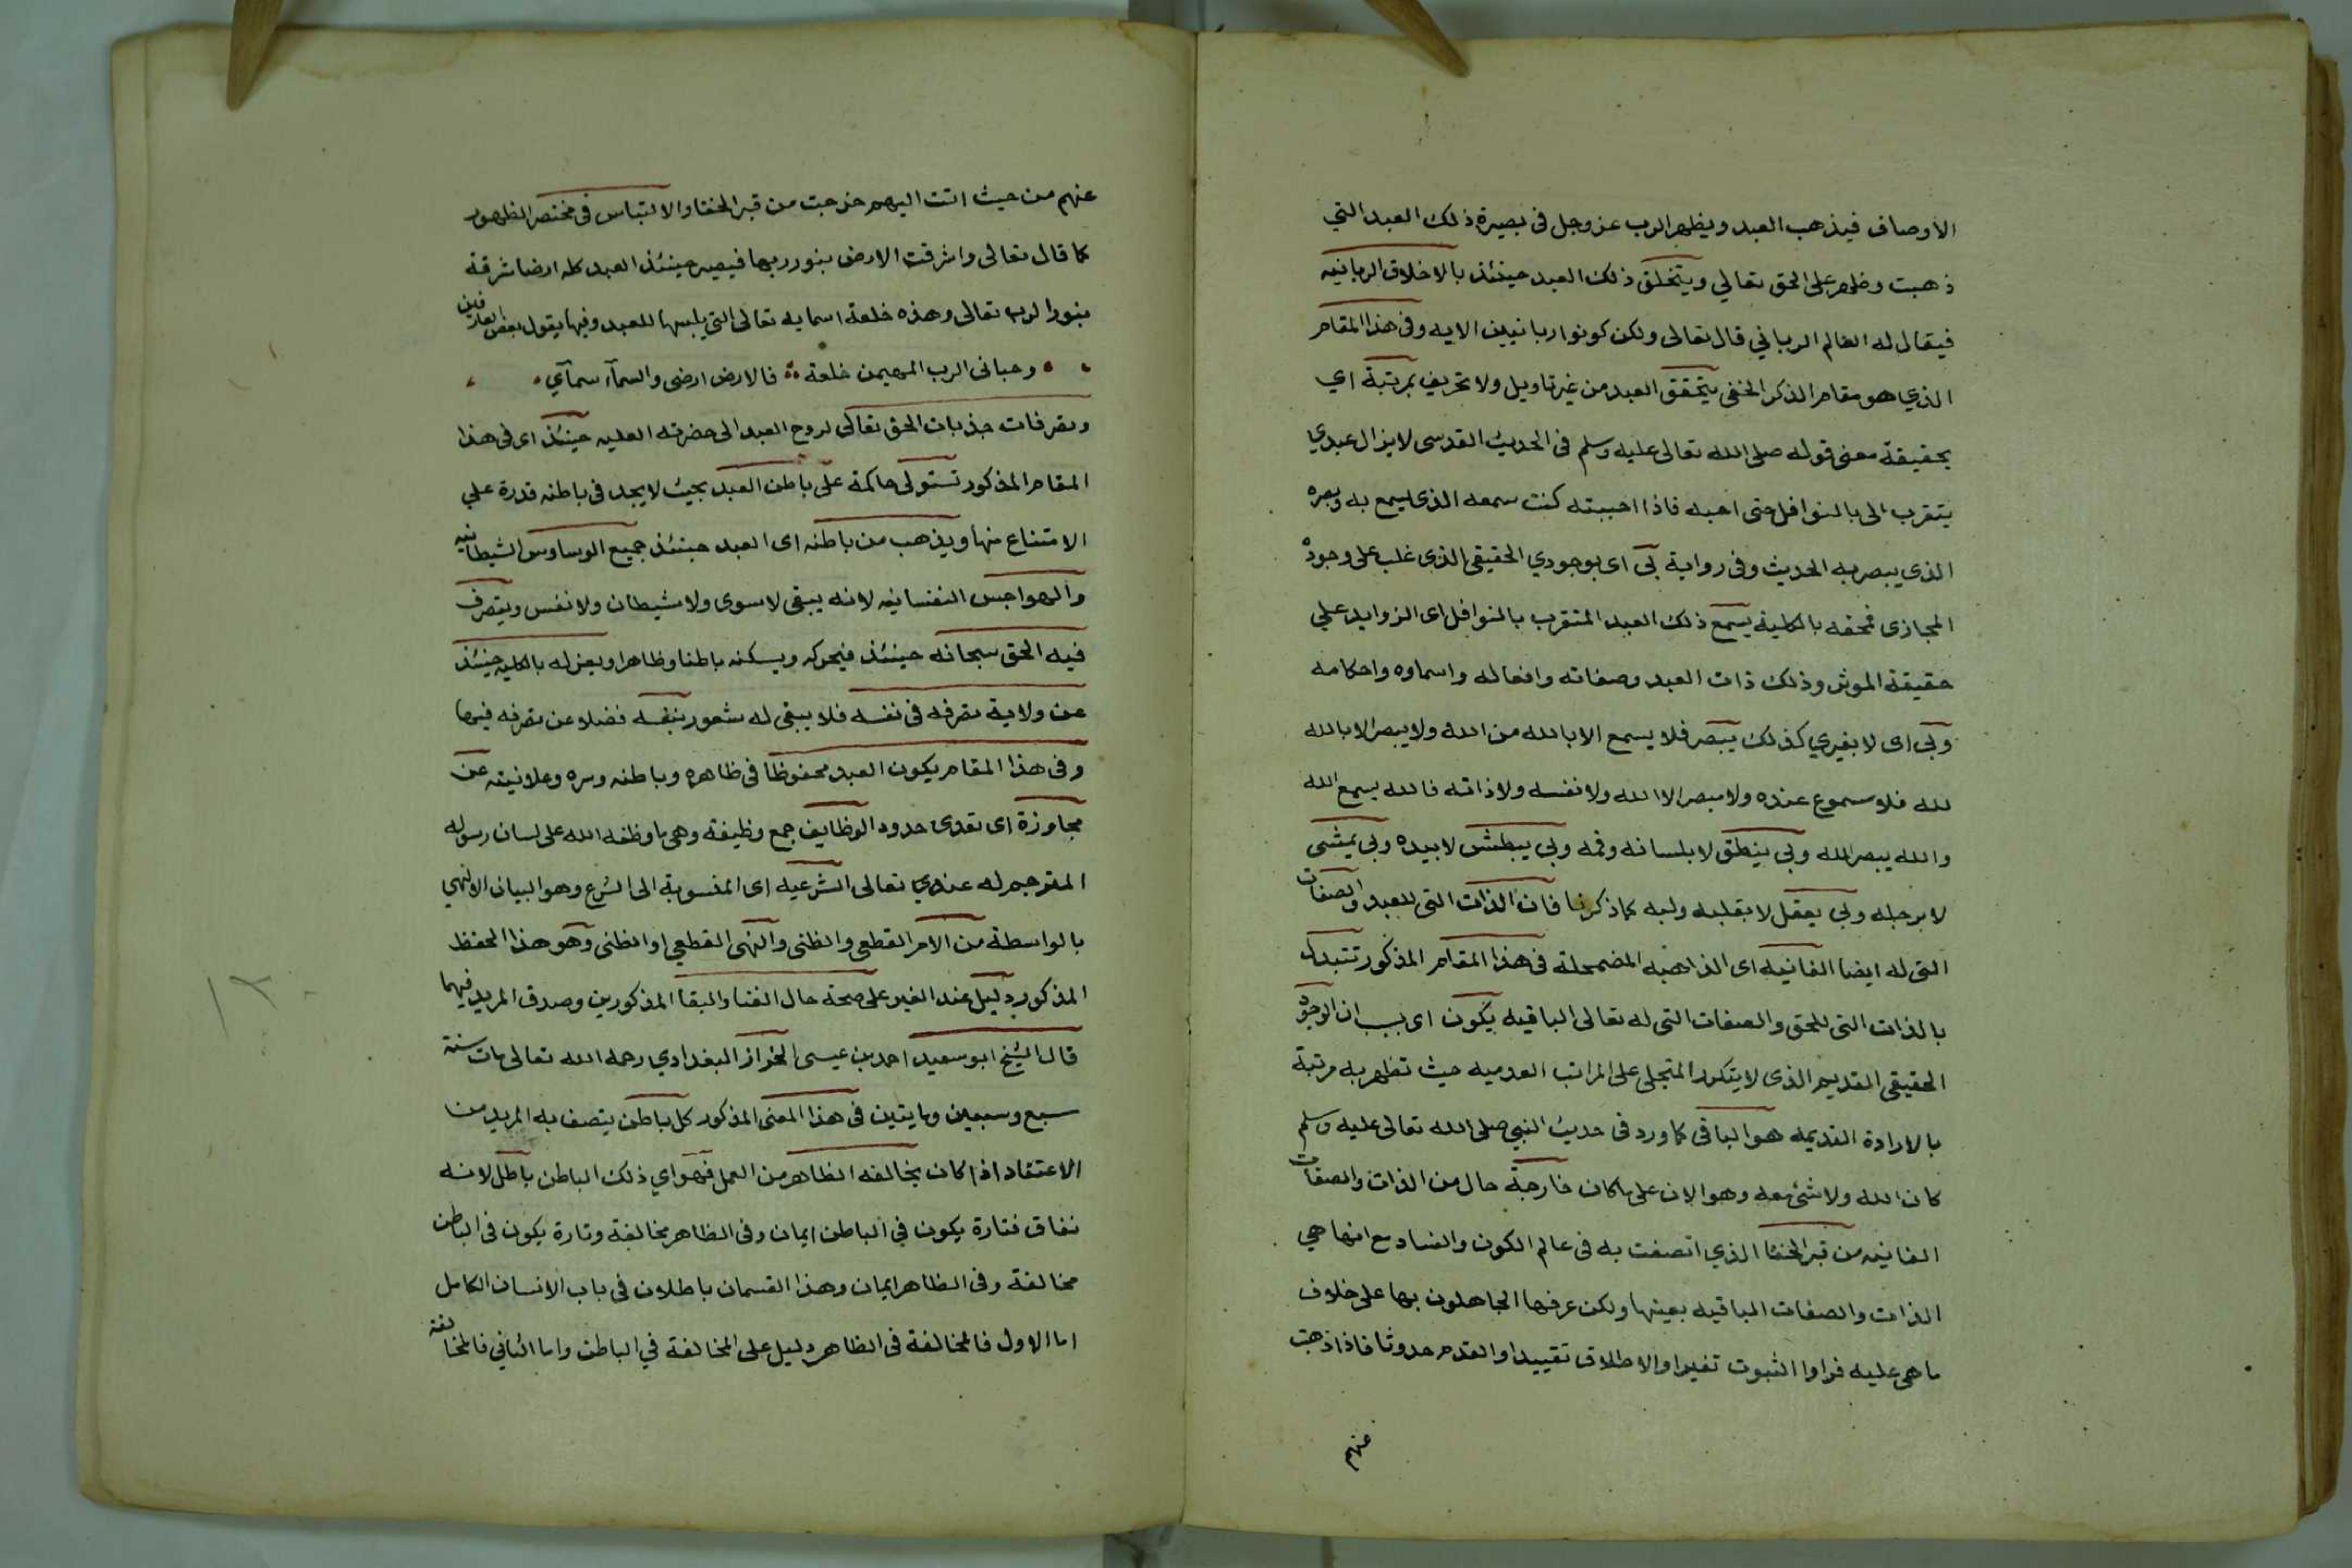 الاوصاف فيذهب العبد ويظهر الرب عز وجل في بصيرة ذلك العبد التي
ذهبت وظهر على الحق تعالي ويتخلق ذلك العبد حينئذ بالاخلاق الربانيه
فيقال له العالم الرباني قال تعالى ولكن كونوا ربانيين الايه وفي هذا المقام
الذي هو مقام الذكر الخفي يتحقق العبد من غير تاويل ولا تحريف بمرتبة اي
بحقيقة معنى قوله صلى الله تعالى عليه وسلم في الحديث القدسى لا يزال عبدي
يتقرب الى بالنوافل حتى احبه فاذا احببته كنت سمعه الذى يسمع به وبصره
الذي يبصر به الحديث وفى رواية بى اى بوجودي الحقيقى الذى غلب على وجوده
المجازى فمحقه بالكلية يسمع ذلك العبد المتقرب بالنوافل اى الزوايد علي
حقيقة الموثر وذلك ذات العبد وصفاته وافعاله واسماوه واحكامه
وبى اى لا بغيري كذلك يبصر فلا يسمع الا بالله من الله ولا يبصر الا بالله
لله فلا مسموع عنده ولا مبصر الا الله ولا نفسه ولا ذاته فالله يسمع الله
والله يبصر الله وبي ينطق لا بلسانه وفمه وبي يبطش لا بيده وبى يمشى
لا برجله وبي يعقل لا بقلبه ولبه كما ذكرنا فان الذات التى للعبد والصفات
التى له ايضا الفانيه اى الذاهبه المضمحلة فى هذا المقام المذكور تتبدل
بالذات التى للحق والصفات التى له تعالى الباقيه يكون اى بسبب ان الوجود
الحقيقى القديم الذى لا يتكرر المتجلى على المراتب العدميه حيث تظهر به مرتبة
بالارادة القديمه هو الباقى كما ورد فى حديث النبي صلى الله تعالى عليه وسلم
كان الله ولا شئ معه وهو الان على ما كان خارجة حال من الذات والصفات
الفانيه من قبر الخفا الذي اتصفت به فى عالم الكون والفساد مع انها هي
الذات والصفات الباقيه بعينها ولكن عرفها الجاهلون بها على خلاف
ما هى عليه فراوا الثبوت تغيرا والاطلاق تقييدا والقدم حدوثا فاذا ذهبت
عنهم
عنهم من حيث اتت اليهم خرجت من قبر الخفا والالتباس فى مختصر الظهور
كما قال تعالى واشرقت الارض بنور ربها فيصير حينئذ العبد كله ارضا شرقة
بنور الرب تعالى وهذه خلعة اسمايه تعالى التي يلبسها للعبد وفيها يقول بعض العارفين
وحبانى الرب المهيمن خلعة فالارض ارضى والسمآء سمآي
وتصرفات جذبات الحق تعالى لروح العبد الى حضرته العليه حينئذ اى فى هذا
المقام المذكور تستولى حاكمة على باطن العبد بحيث لا يجد فى باطنه قدرة علي
الامتناع منها ويذهب من باطنه اى العبد حينئذ جميع الوساوس الشيطانيه
والهواجس النفسانيه لانه يبقى لا سوى ولا شيطان ولا نفس ويتصرف
فيه الحق سبحانه حينئذ فيحركه ويسكنه باطنا وظاهرا ويعزله بالكليه حينئذ
عن ولاية تصرفه فى نفسه فلا يبقى له شعور بنفسه فضلا عن تصرفه فيها
وفى هذا المقام يكون العبد محفوظا فى ظاهره وباطنه وسره وعلانيته عن
مجاوزة اى تعدى حدود الوظايف جمع وظيفة وهى ما وظفه الله على لسان رسوله
المترجم له عنده تعالى الشرعيه اى المنسوبة الى الشرع وهو البيان الالهي
بالواسطة من الامر القطعى والظنى والنهى القطعي او الظنى وهو هذا الحفظ
المذكور دليل عند الغير على صحة حال الفنا والبقا المذكورين وصدق المريد فيهما
قال الشيخ ابو سعيد احمد بن عيسى الخراز البغدادي رحمه الله تعالى مات سنة
سبع وسبعين ومايتين فى هذا المعنى المذكور كل باطن يتصف به المريد من
الاعتقاد اذا كان يخالفه الظاهر من العمل فهو اي ذلك الباطن باطل لانه
نفاق فتارة يكون في الباطن ايمان وفى الظاهر مخالفة وتارة يكون فى الباطن
مخالفة وفى الظاهر ايمان وهذا القسمان باطلان فى باب الانسان الكامل
اما الاول فالمخالفة فى الظاهر دليل على المخالفة في الباطن واما الثاني فالمخالفة